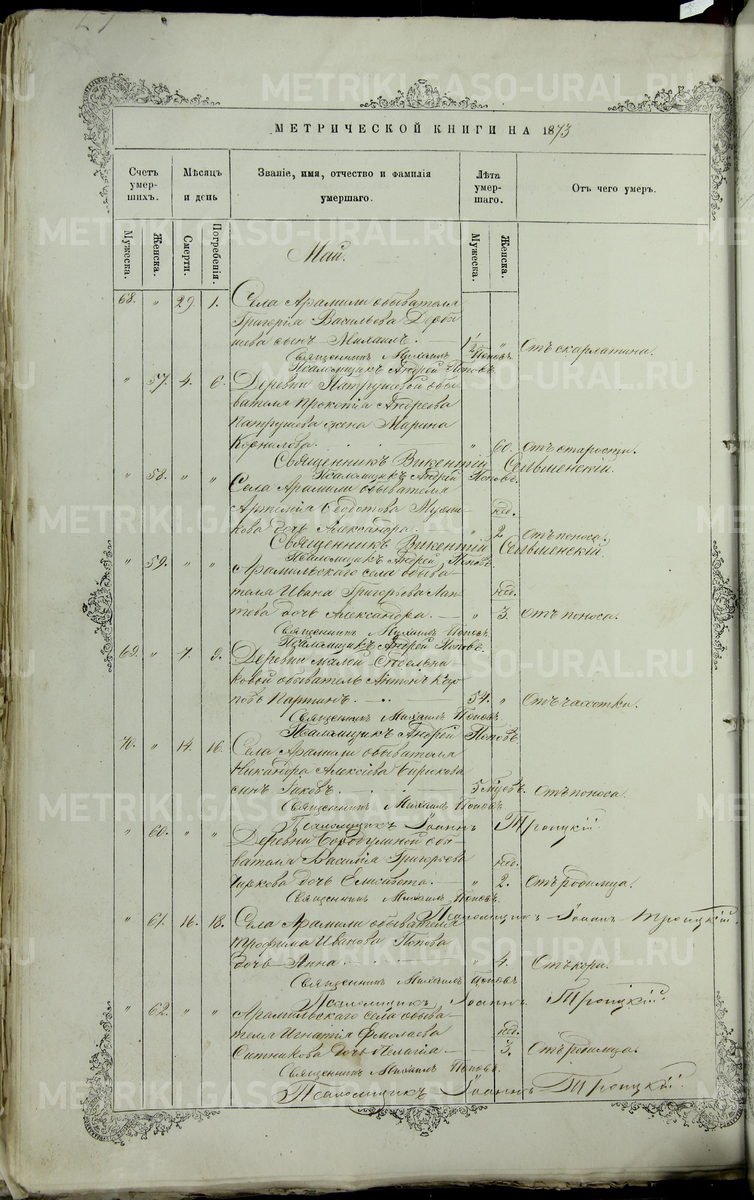 МЕТРИЧЕСКОЙ КНИГИ НА 1873
Счетъ умер- шихъ.
Мѣсяцъ и день
Званіе, имя, отчество и фамилія умершаго.
Лѣта умер- шаго.
Отъ чего умеръ.
Мужеска. Женска. Смерти. Погребенія. Мужеска. Женска.
Май.
68. " 29. 1. Села Арамили обывателя
Григорія Васильева
сынъ Михаилъ. 1½ " Отъ скарлатины.
Священникъ Михаилъ Поповъ.
Псаломщикъ Андрей Поповъ.
" 57. 4. 6. Деревни Патрушевой обы-
вателя Прокопія Андреева
Патрушева жена Марина
Корнилова. " 60. Отъ старости.
Священникъ Викентій
Псаломщикъ Андрей Поповъ.
" 58. " " Села Арамили обывателя
Артемія Ѳедотова
кова дочь Александра. " нед. 2 Отъ поноса.
Священникъ Викентій
Псаломщикъ Андрей Поповъ.
" 59. " " Арамильскаго села обыва-
теля Ивана Григорьева Лап-
тева дочь Александра. " нед. 3. Отъ поноса.
Священникъ Михаилъ Поповъ.
Псаломщикъ Андрей Поповъ.
69. " 7. 9. Деревни Малой Сѣдельни-
ковой обыватель Антонъ Кар-
повъ 54. " Отъ чахотки.
Священникъ Михаилъ Поповъ.
Псаломщикъ Андрей Поповъ.
70. " 14. 16. Села Арамили обывателя
Никандра Алексіева
сынъ Іаковъ. 5 мцовъ. Отъ поноса.
Священникъ Михаилъ Поповъ.
Псаломщикъ Іоаннъ Троицкій.
" 60. " " Деревни Бородулиной обы-
вателя Василія Григорьева
Чиркова дочь Елисавета. " нед. 2. Отъ родимца.
Священникъ Михаилъ Поповъ.
Псаломщикъ Іоаннъ Троицкій.
" 61. 16. 18. Села Арамили обывателя
Трофима Иванова Попова
дочь Анна. " 4. Отъ кори.
Священникъ Михаилъ Поповъ
Псаломщикъ Іоаннъ Троицкій.
" 62. " " Арамильскаго села обыва-
теля Игнатія Ермолаева
Ситникова дочь Пелагія " нед. 3. Отъ родимца.
Священникъ Михаилъ Поповъ.
Псаломщикъ Іоаннъ Троицкій.
METRIKI.GASO-URAL.RU